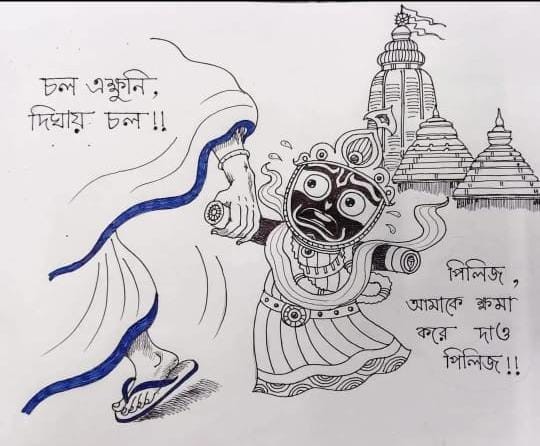 চল এক্ষুনি,
দিঘায় চল!!
পিলিজ,
আমাকে ক্ষমা
করে দাও
পিলিজ!!